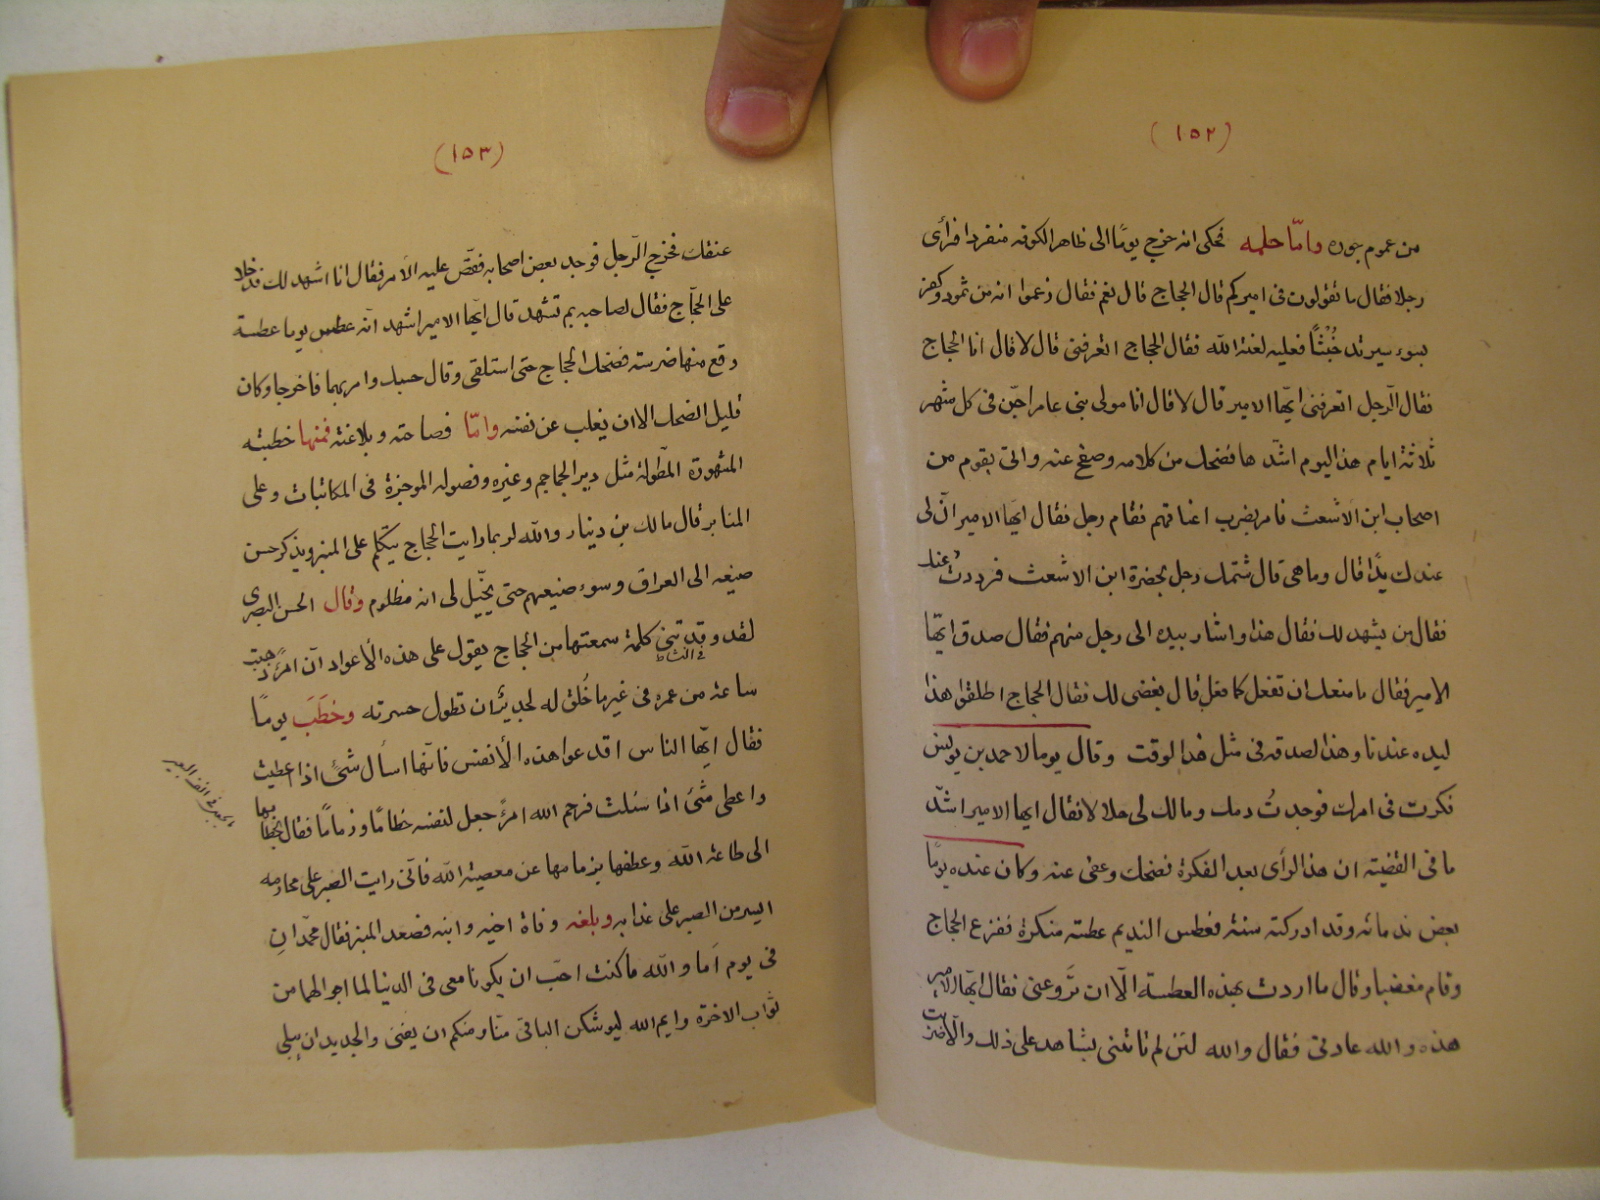 (١٥٢)
من عموم جوره وامّا حلمه فحكى انه خرج يومًا الى ظاهر الكوفه منفردا فرأى
رجلا فقال ما تقولون فى اميركم قال الحجاج قال نعم فقال زعموا انه من ثمود وكفى
بسوء سيرته خُبْثًا فعليه لعنة الله فقال الحجاج اتعرفنى قال لا قال انا الحجاج
فقال الرّجل اتعرفنى ايّها الامير قال لا قال انا مولى بنى عامر اجنّ فى كل شهر
ثلاثة ايام هذا اليوم اشدّها فضحك من كلامه وصفح عنه واتى بقوم من
اصحاب ابن الاشعث فامر بضرب اعناقهم فقام رجل فقال ايّها الامير انّ لى
عندك يدًا قال وما هى قال شتمك رجل بحضرة ابن الاشعث فرددت عنك
فقال من يشهد لك فقال هذا واشار بيده الى رجل منهم فقال صدق ايّها
الامير فقال ما منعك ان تفعل كما فعل قال بغضى لك فقال الحجاج اطلقوا هذا
ليده عندنا وهذا لصدقه فى مثل هذا الوقت وقال يوما لاحمد بن يونس
فكرت فى امرك فوجدتُ دمك ومالك لى حلالا فقال ايها الامير اشدّ
ما فى القضيّة ان هذا الرأى بعد الفكرة فضحك وعفى عنه وكان عنده يومًا
بعض ندمائه وقد ادركته سنة فعطس النديم عطسة منكرة ففزع الحجاج
وقام مغضبا وقال ما اردت بهذه العطسة الّا ان تَروّعنى فقال ايّها الامير
هذه والله عادتى فقال والله لئن لم تاتنى بشاهد على ذلك والّا ضربت
(١٥٣)
عنقك فخرج الرّجل فوجد بعض اصحابه فقصّ عليه الامر فقال انا اشهد لك فدخلا
على الحجّاج فقال لصاحبه بم تشهد قال ايّها الامير اشهد انّه عطس يوما عطسة
وقع منها ضرسه فضحك الحجاج حتى استلقى وقال حسبك وامر بهما فاخرجا وكان
قليل الضحك الا ان يغلب عن نفسه وامّا فصاحته وبلاغته فمنها خطبته
المشهورة المطّولة مثل دير الجماجم وغيره وفصوله الموجزة فى المكاتبات وعلى
المنابر قال مالك بن دينار والله لربما رايت الحجاج يتكلم على المنبر ويذكر حسن
صنيعه الى العراق وسوء صنيعهم حتى يخيّل لى انه مظلوم وقال الحسن البصرى
لقد وقدتنى كلمة سمعتها من الحجاج يقول على هذه الأعواد انّ امرًء ذهبت
ساعة من عمره فى غير ما خُلق له لجديرٌ ان تطول حسرته وخطَبَ يومًا
فقال ايّها الناس اقدعوا هذه الأنفس فانّها اسأل شئ اذا اعطيت
واعطى شئ اذا سئلت فرحم الله امرًء جعل لنفسه خطامًا وزمامًا فقادها بخطامها
الى طاعة الله وعطفها بزمامها عن معصية الله فانّى رايت الصبر على محارمه
ايسر من الصبر على عذابه وبلغه وفاة اخيه وابنه فصعد المنبر فقال محمّدانِ
فى يوم اَما والله ما كنت احبّ ان يكونا معى فى الدنيا لما ارجو لهما من
ثواب الاخرة وايم الله ليوشكن الباقى منّا ومنكم ان يفنى والجديد ان يبلى